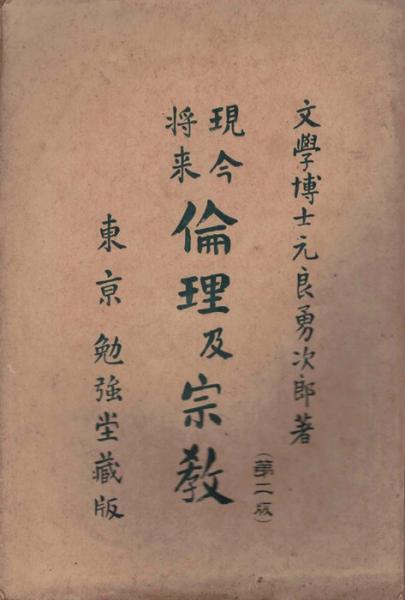 文學博士元良勇次郎著
現今
将来
倫理及宗教
(第二版)
東亰勉強堂藏版